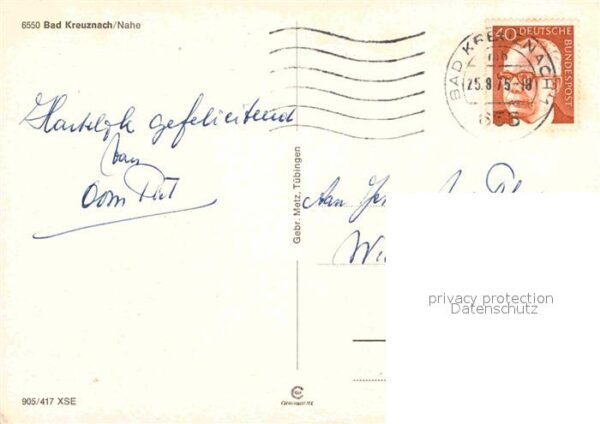 6550 Bad Kreuznach/Nahe
40 DEUTSCHE BUNDESPOST
BAD KREUZNACH
25.9.75-18
655
Hartelijk gefeliciteerd
van
Oom Piet
Gebr. Metz, Tübingen
Aan
privacy protection
Datenschutz
905/417 XSE